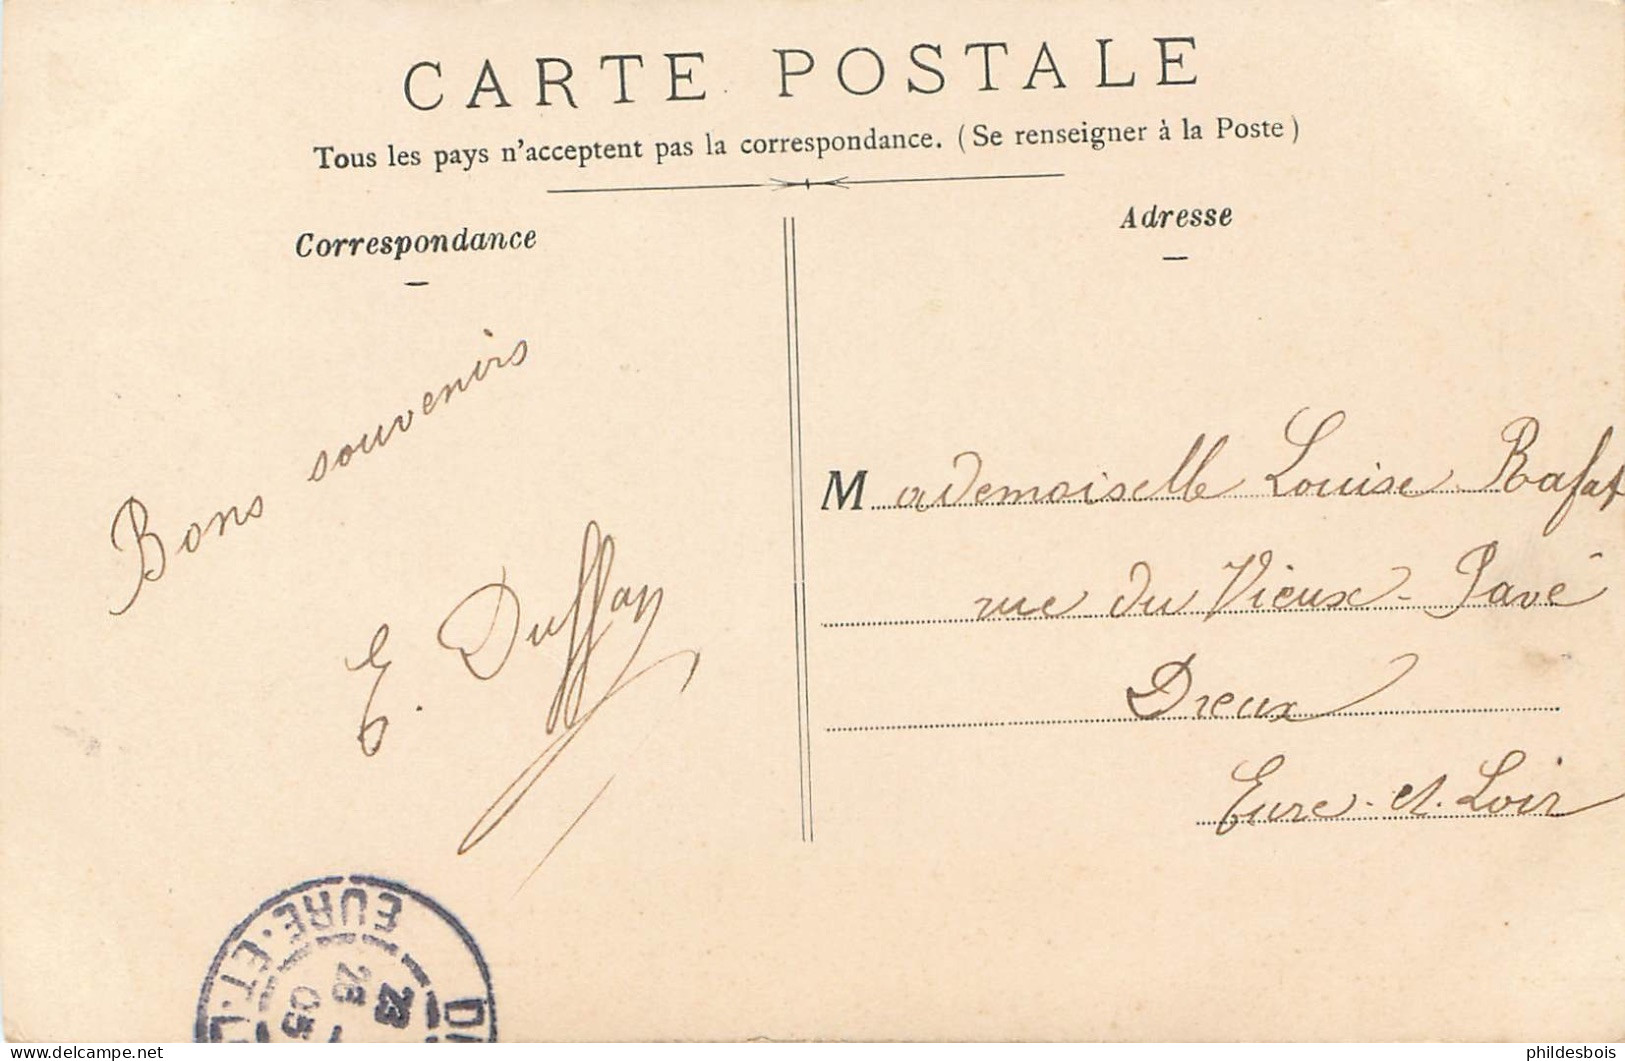 CARTE POSTALE
Tous les pays n'acceptent pas la correspondance. (Se renseigner à la Poste)
Correspondance
Adresse
Bons souvenirs
E. Duffay
Mademoiselle Louise Rafat
rue du Vieux-Pavé
Dreux
Eure-et-Loir
EURE.ET.L
23
26
05
phildesbois
www.delcampe.net